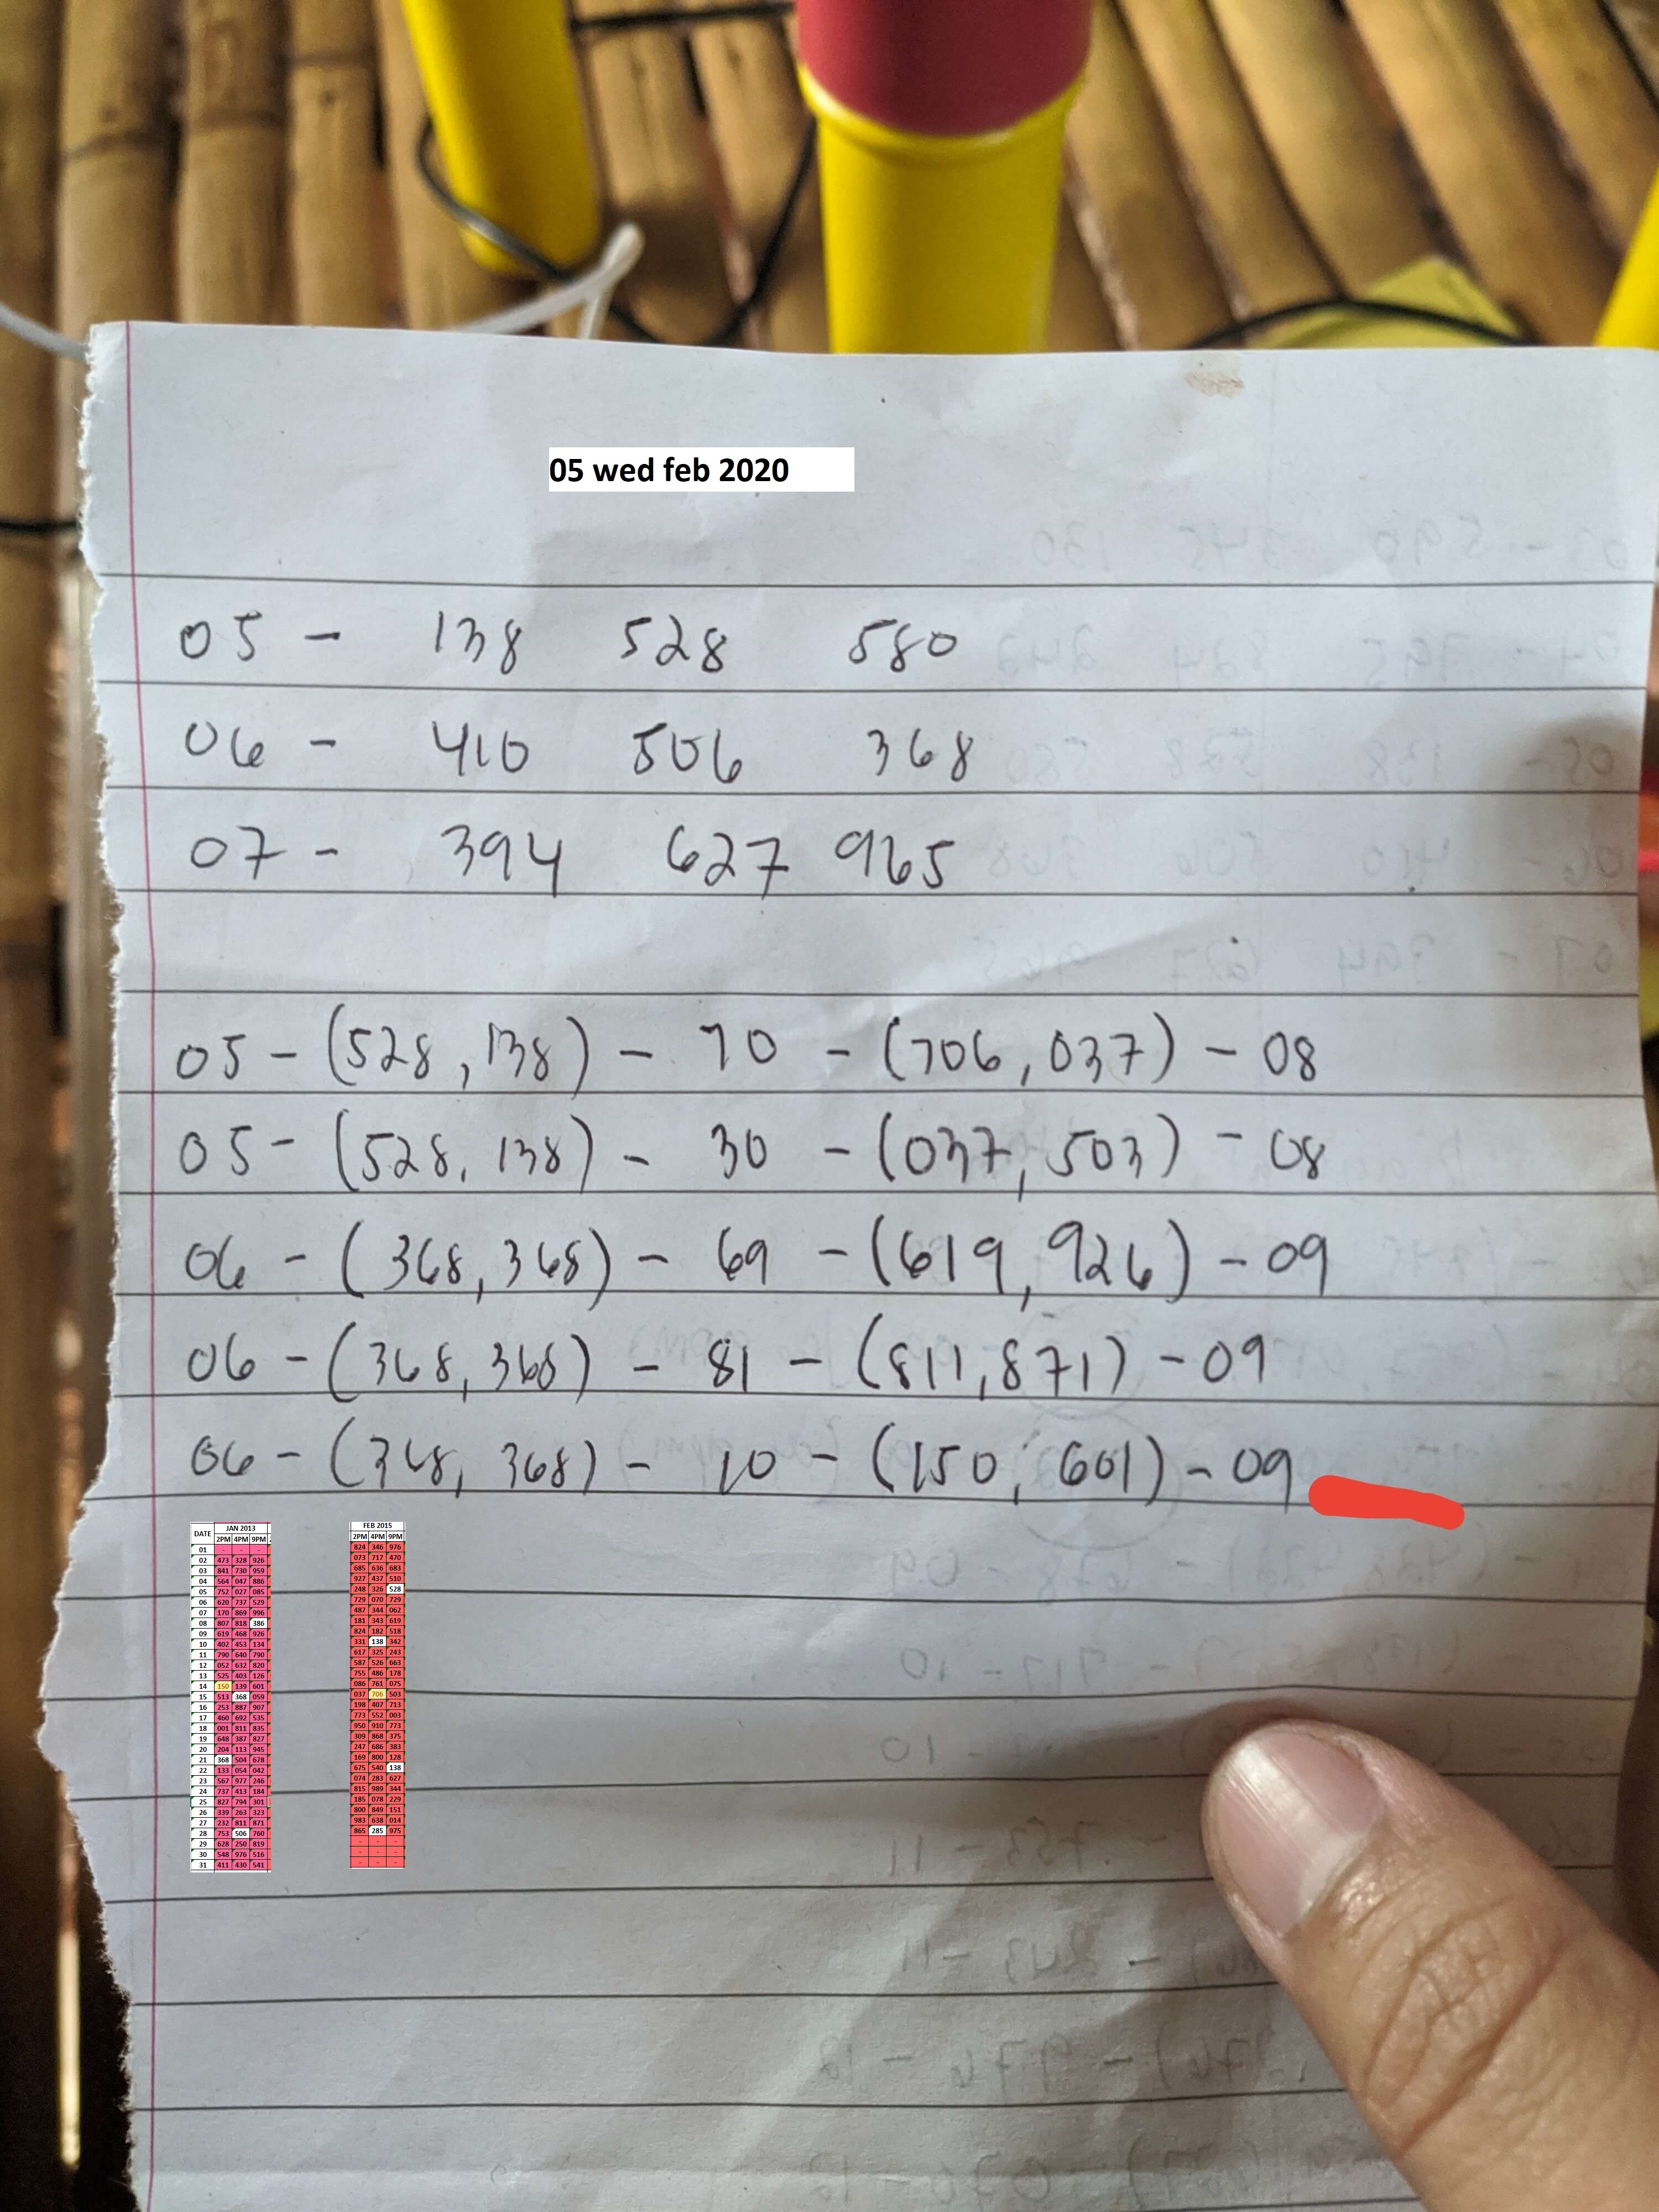 05 wed feb 2020
05 - 138 528 580
06 - 410 506 368
07 - 394 627 965
05 - (528, 138) - 70 - (706, 037) - 08
05 - (528, 138) - 30 - (037, 503) - 08
06 - (368, 368) - 69 - (619, 926) - 09
06 - (368, 368) - 81 - (811, 871) - 09
06 - (368, 368) - 10 - (150, 601) - 09
DATE JAN 2013
2PM 4PM 9PM
01 - - -
02 473 328 926
03 841 730 959
04 564 047 886
05 752 027 085
06 620 737 529
07 170 869 996
08 807 818 386
09 619 468 926
10 402 453 134
11 790 640 790
12 052 632 820
13 525 403 126
14 150 139 601
15 513 368 059
16 253 887 907
17 460 692 535
18 001 811 835
19 648 387 827
20 204 113 945
21 368 504 678
22 133 054 042
23 567 977 246
24 737 413 184
25 827 794 301
26 339 263 323
27 232 811 871
28 753 506 760
29 628 250 819
30 548 976 516
31 411 430 541
FEB 2015
2PM 4PM 9PM
824 346 976
073 717 470
685 636 683
927 437 510
248 326 528
729 070 729
487 344 062
181 343 619
824 182 518
331 138 342
617 325 243
587 526 663
755 486 178
086 761 075
037 706 503
198 407 713
773 552 003
950 910 773
309 868 375
247 686 383
169 800 128
675 540 138
074 283 627
815 989 344
185 078 229
800 849 151
983 638 014
865 285 975
- - -
- - -
- - -